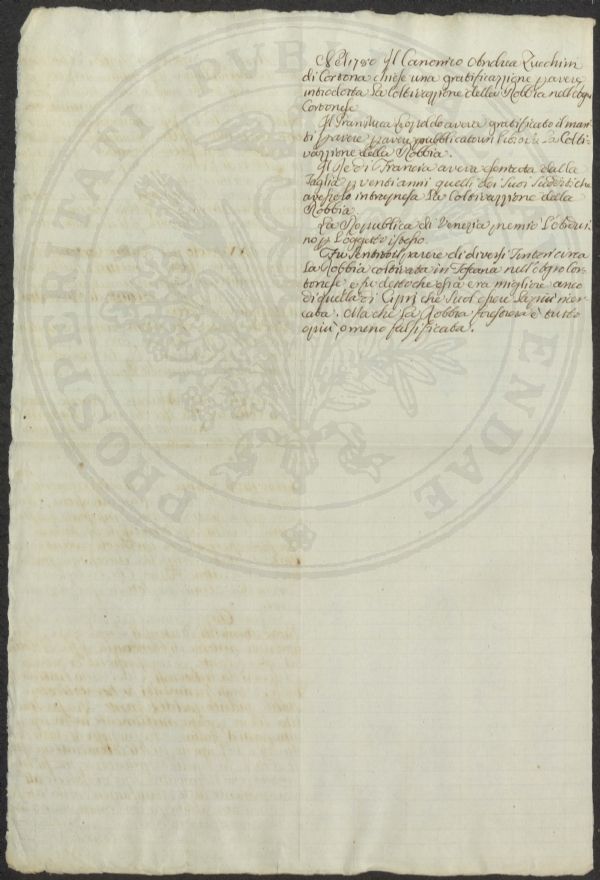 Nel 1780 Il Canonico Andrea Zucchini
di Cortona chiese una gratificazzione p avere
introdotta La Coltivazzione della Robbia nell'Agro
Cortonese
Il Granduca Leopoldo aveva gratificato il
p avere pubblicato un Libro La Colti-
vazzione della Robbia.
Il Re di Francia aveva esentata dalla
Taglia p venti anni quelli dei Suoi Sudditi che
avessero intrapresa La Coltivazzione della
Robbia
La Repubblica di Venezia premiò L'
p L'oggetto istesso
Fu sentito il parere di diversi Tintori circa
La Robbia coltivata in Toscana nell'Agro Cor-
tonese e fu detto che essa era migliore anco
di quella di Cipri che suol essere La più
cata. Ma che La Robbia forestiera è tutta
o più, o meno falsificata.
PROSPERITATI PUBLICAE AUGENDAE